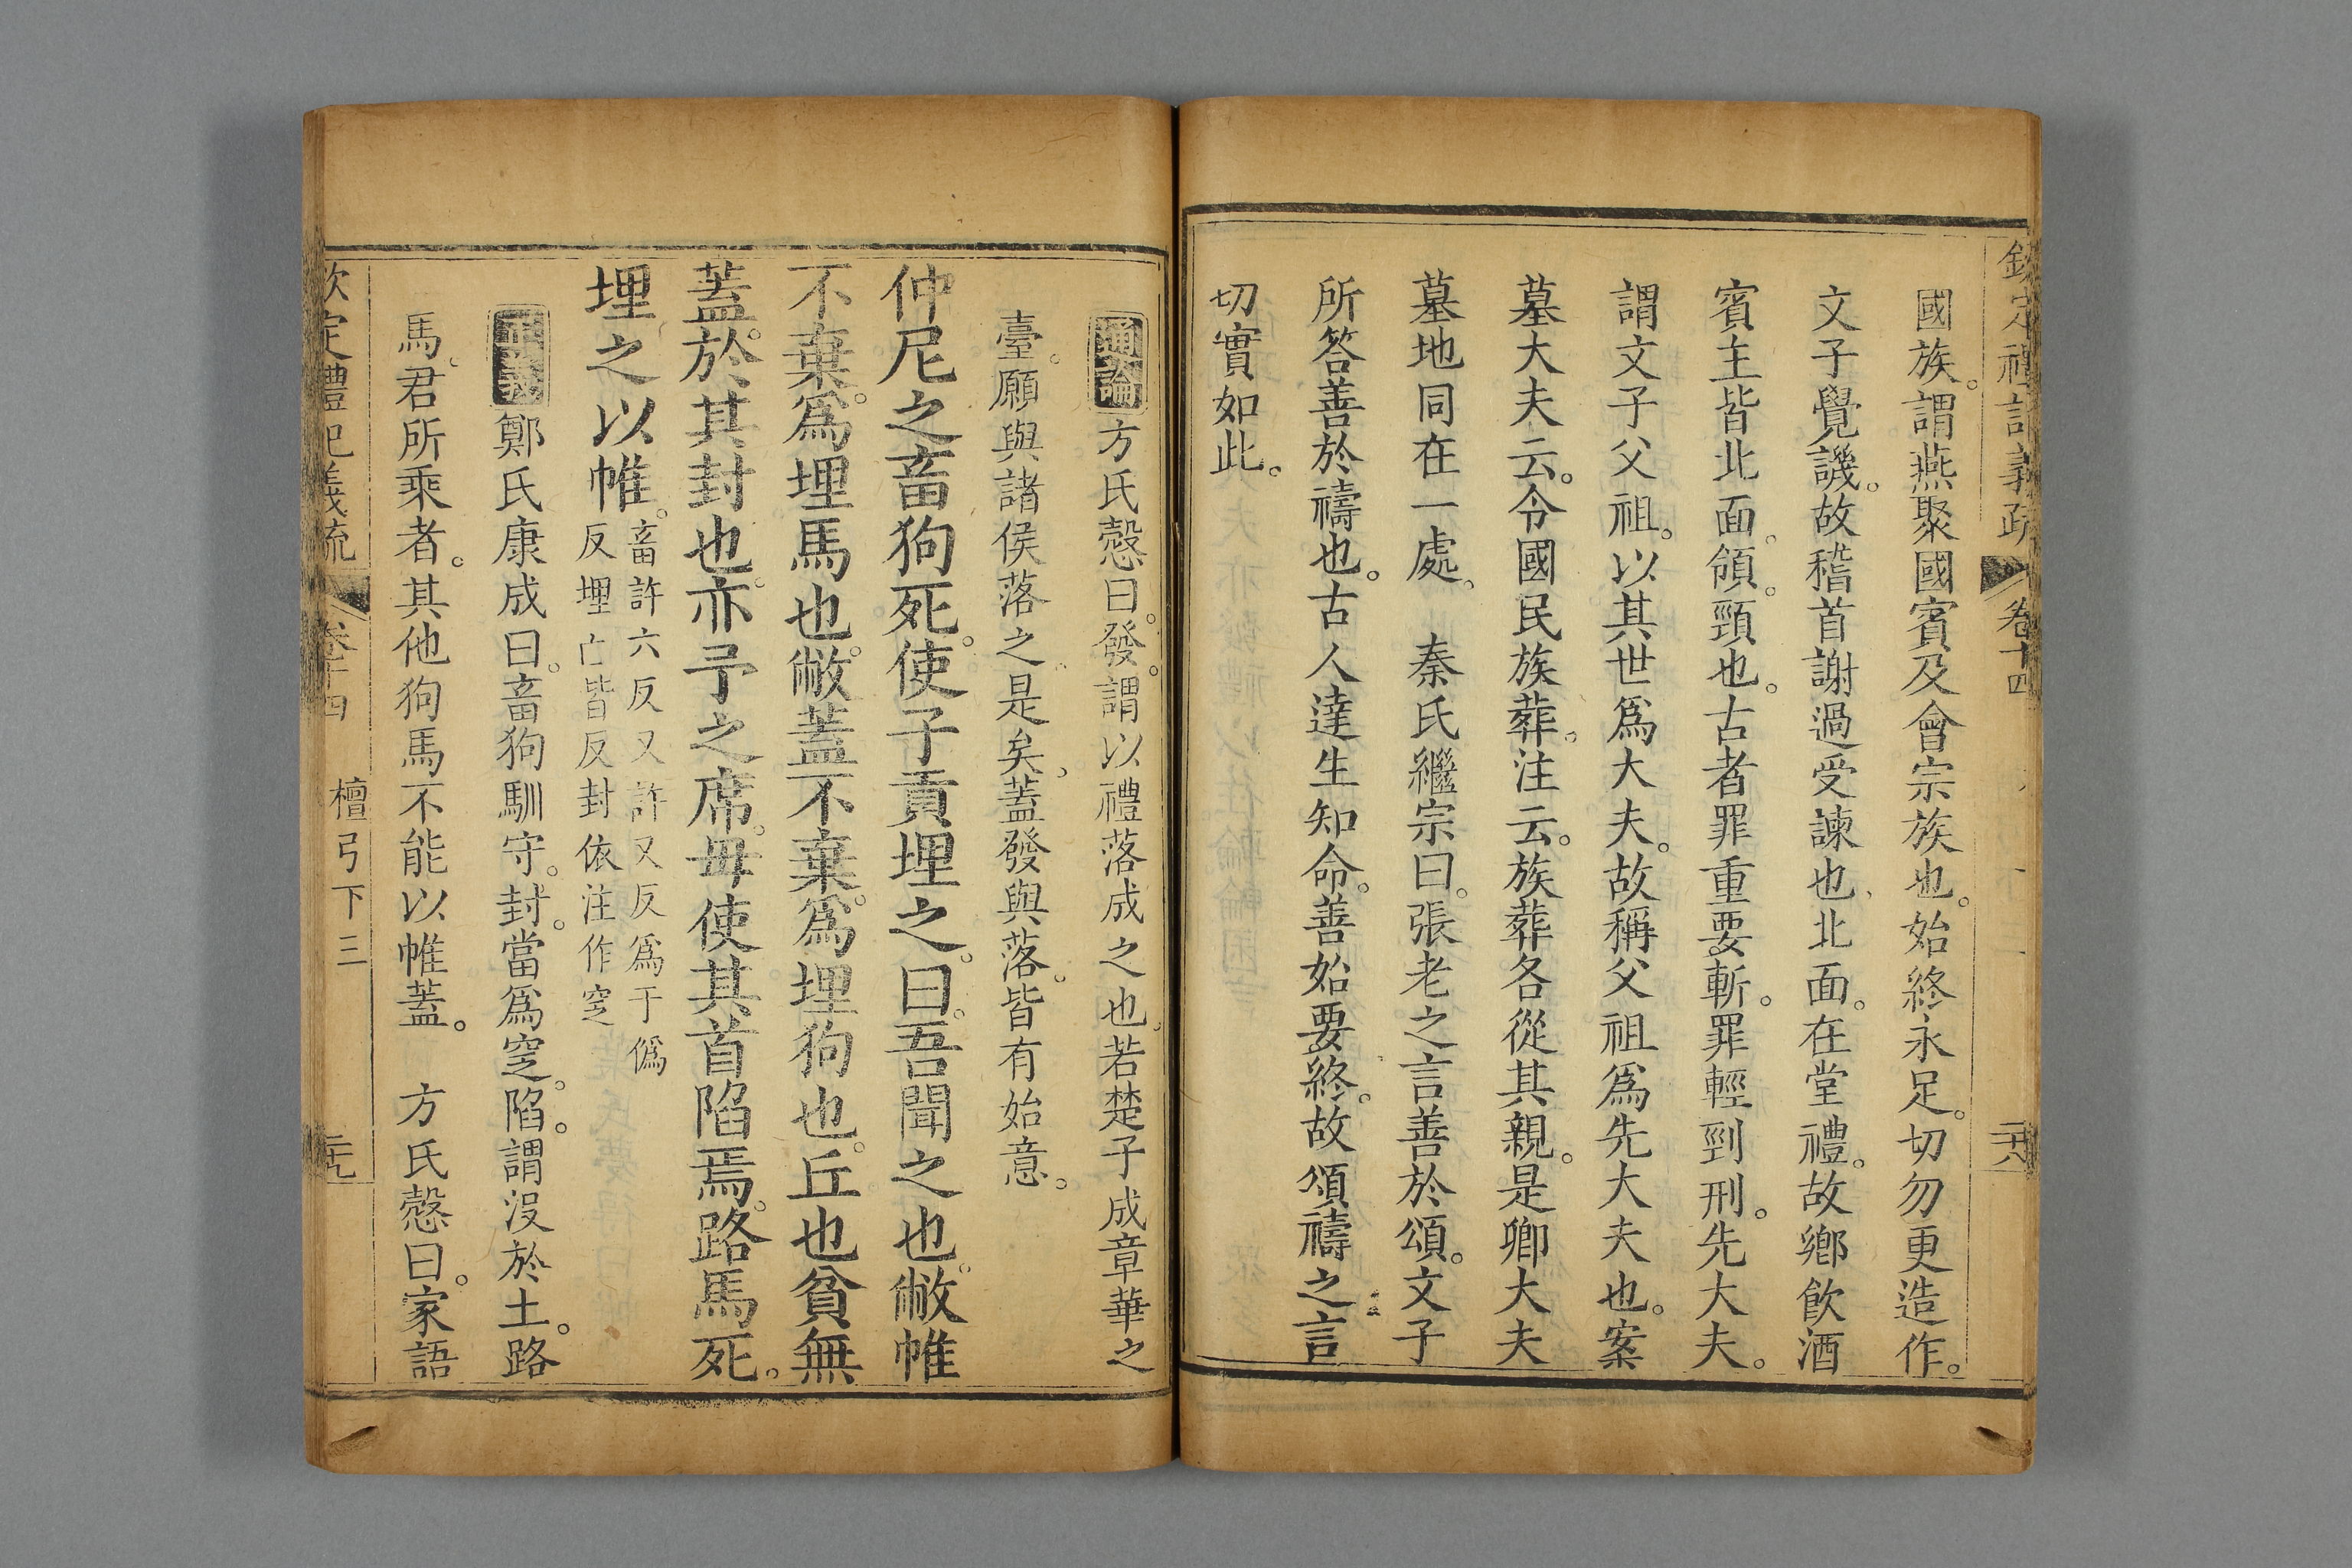 欽定禮記義疏 卷十四 三六
國族。謂燕聚國賓及會宗族也。始終永足。切勿更造作。
文子覺譏。故稽首謝過受諫也、北面。在堂禮。故鄉飲酒
賓主皆北面。領。頸也。古者罪重要斬。罪輕剄刑。先大夫。
謂文子父祖。以其世爲大夫。故稱父祖爲先大夫也。案
墓大夫云。令國民族葬。注云。族葬各從其親。是卿大夫
墓地同在一處。 秦氏繼宗曰。張老之言善於頌。文子
所答善於禱也。古人達生知命。善始要終。故頌禱之言
切實如此。
通論方氏慤曰。發。謂以禮落成之也、若楚子成章華之
臺。願與諸侯落之。是矣、蓋發與落。皆有始意。
仲尼之畜狗死。使子貢埋之。曰。吾聞之也。敝帷
不棄。爲埋馬也。敝蓋不棄。爲埋狗也。丘也貧無
蓋。於其封也。亦予之席。毋使其首陷焉。路馬死。
埋之以帷。畜許六反又許又反爲于僞
反埋亡皆反封依注作窆
正義鄭氏康成曰。畜狗馴守。封。當爲窆。陷。謂沒於土。路
馬。君所乘者。其他狗馬不能以帷蓋。 方氏慤曰。家語
欽定禮記義疏 卷十四 檀弓下三 三九